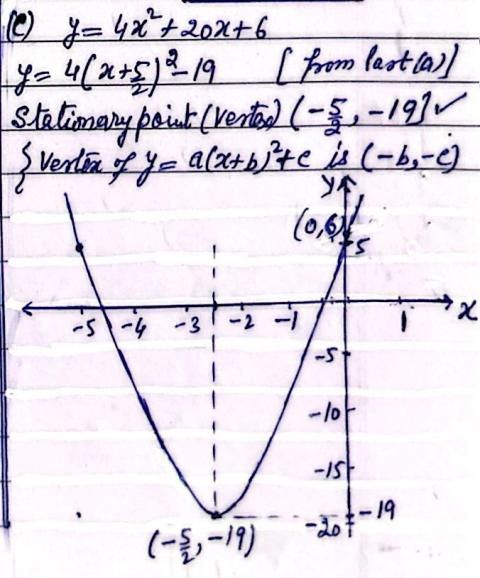 (C) y = 4x² + 20x + 6
y = 4(x + 5/2)² - 19 [from last (a)]
Stationary point (vertex) (-5/2, -19] ✓
{ Vertex of y = a(x+b)² + c is (-b, -c)
y
(0,6)
5
x
-5 -4 -3 -2 -1 1
-5
-10
-15
-20 -19
(-5/2, -19)